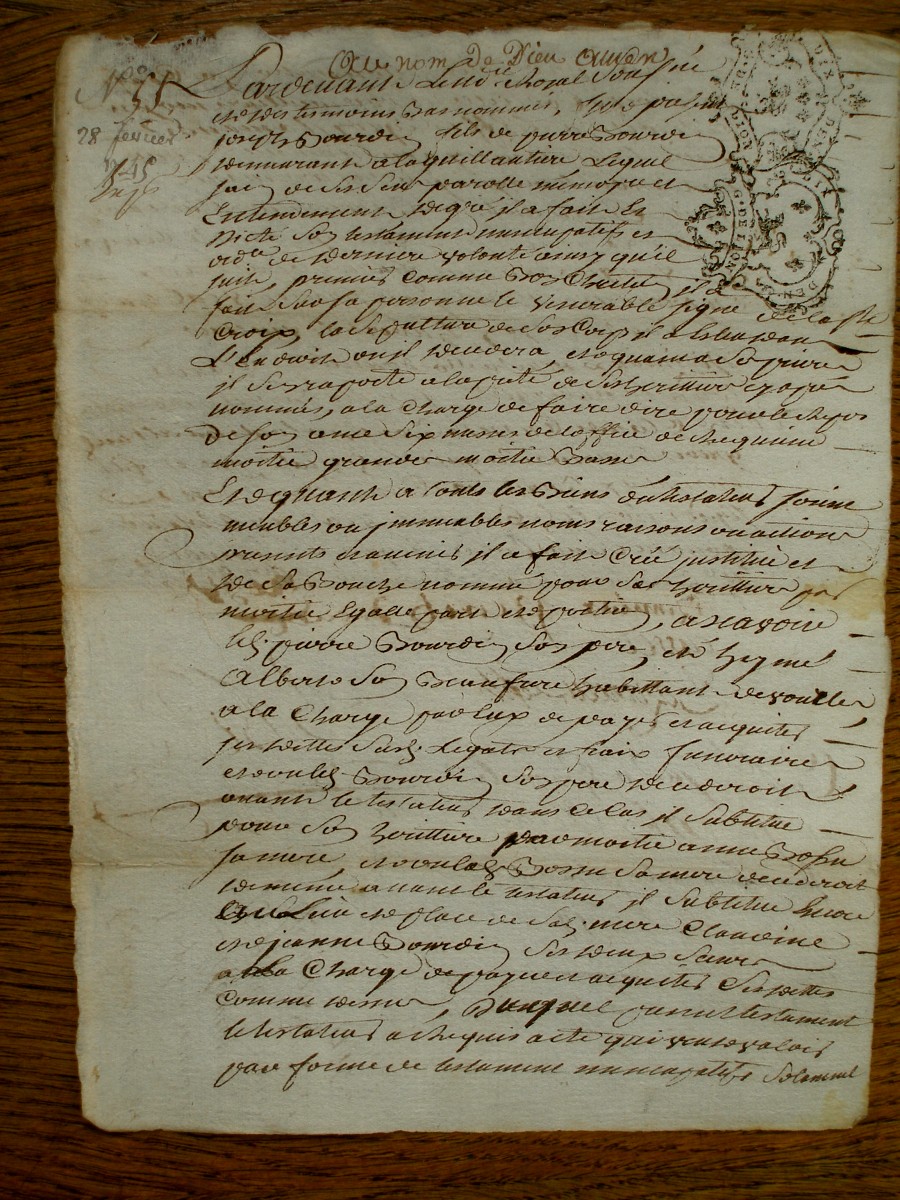 Au nom de Dieu Amen
N° 31
28 fevrier
1745
Pardevant Le no.re Royal Soussigné
et les temoins bas nommés, fut present
joseph Bourdin fils de pierre Bourdin
demeurant a la guillautiere Lequel
sain de ses sens parolle memoire et
Entendement de gré il a fait Et
Dicté son testament nuncupatif et
ord.ce de derniere volonté ainsy qu'il
suit, premier comme bon Chretien il a
fait sur sa personne le Venerable signe de la Ste
Croix, la sepulture de son Corps il a Esleu dans
L'Endroit ou il decedera, et quant a ses prieres
il s'en raporte a la pieté de ses heritiers cy apres
nommés, a la Charge de faire dire pour le repos
de son ame six messes de l'office de requiem
moitié grande moitié basse
Et quant a touts les biens du testateur soient
meubles ou jmmeubles noms raisons ou actions
presents et avenir il a fait Créé jnstitué et
de sa Bouche nommé pour ses heritiers par
moitié Egalle part et portion, a scavoir
led. pierre Bourdin son pere, et
Alberto son Beaufrere habittant de
a la Charge par Eux de payer et acquiter
ses dettes susd. Legats et fraix funeraires
et ou led. Bourdin son pere decederoit
avant le testateur dans ce cas il substitue
pour son heritiere par moitié anne
sa mere et ou lad. sa mere decederoit
de meme avant le testateur il substitue Encore
Au Lieu et place de sad. mere Claudine
et jeanne Bourdin ses deux seurs
a la Charge de payer et acquiter ses dettes
Comme dessus, Duquel present testament
le testateur a requis acte qui veut valoir
par forme de testament nuncupatif solemnel